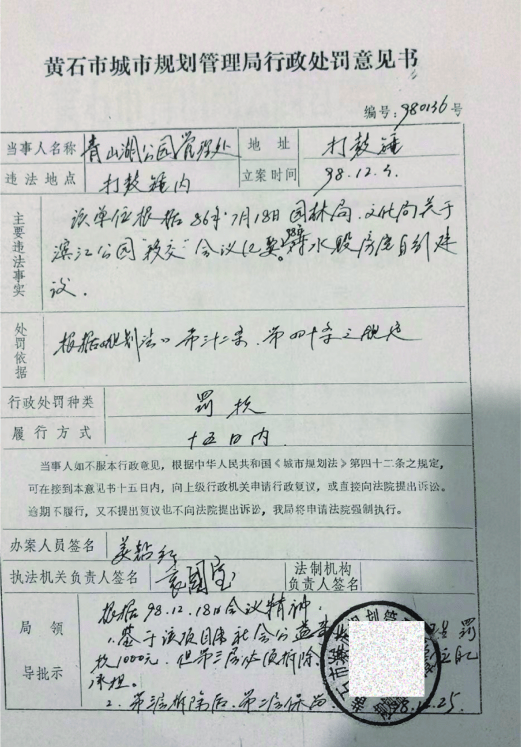 黄石市城市规划管理局行政处罚意见书
编号：980136号
当事人名称 青山湖公园管理处 地址 打鼓锤
违法地点 打鼓锤内 立案时间 98.12.4.
主要违法事实
该单位根据86年7月18日园林局、文化局关于
滨江公园"移交"会议纪要。将水毁房屋自创建
设.
处罚依据
根据《规划法》第三十二条、第四十条之规定
行政处罚种类 罚款
履行方式 十五日内.
当事人如不服本行政意见，根据中华人民共和国《城市规划法》第四十二条之规定，
可在接到本意见书十五日内，向上级行政机关申请行政复议，或直接向法院提出诉讼。
逾期不履行，又不提出复议也不向法院提出诉讼，我局将申请法院强制执行。
办案人员签名
执法机关负责人签名 袁国宝 法制机构负责人签名
局领导批示
根据98.12.18日会议精神.
1.基于该项目属社会公益 罚
款1000元，但第三层必须拆除
承担.
2.第三层拆除后，第二层保留 .12.25.